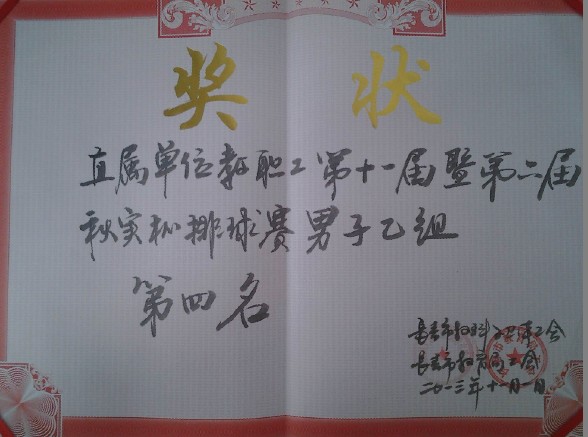 奖状
直属单位教职工第十一届暨第六届
秋实杯排球赛男子乙组
第四名
长春市教育局工会
二〇一三年十一月一日